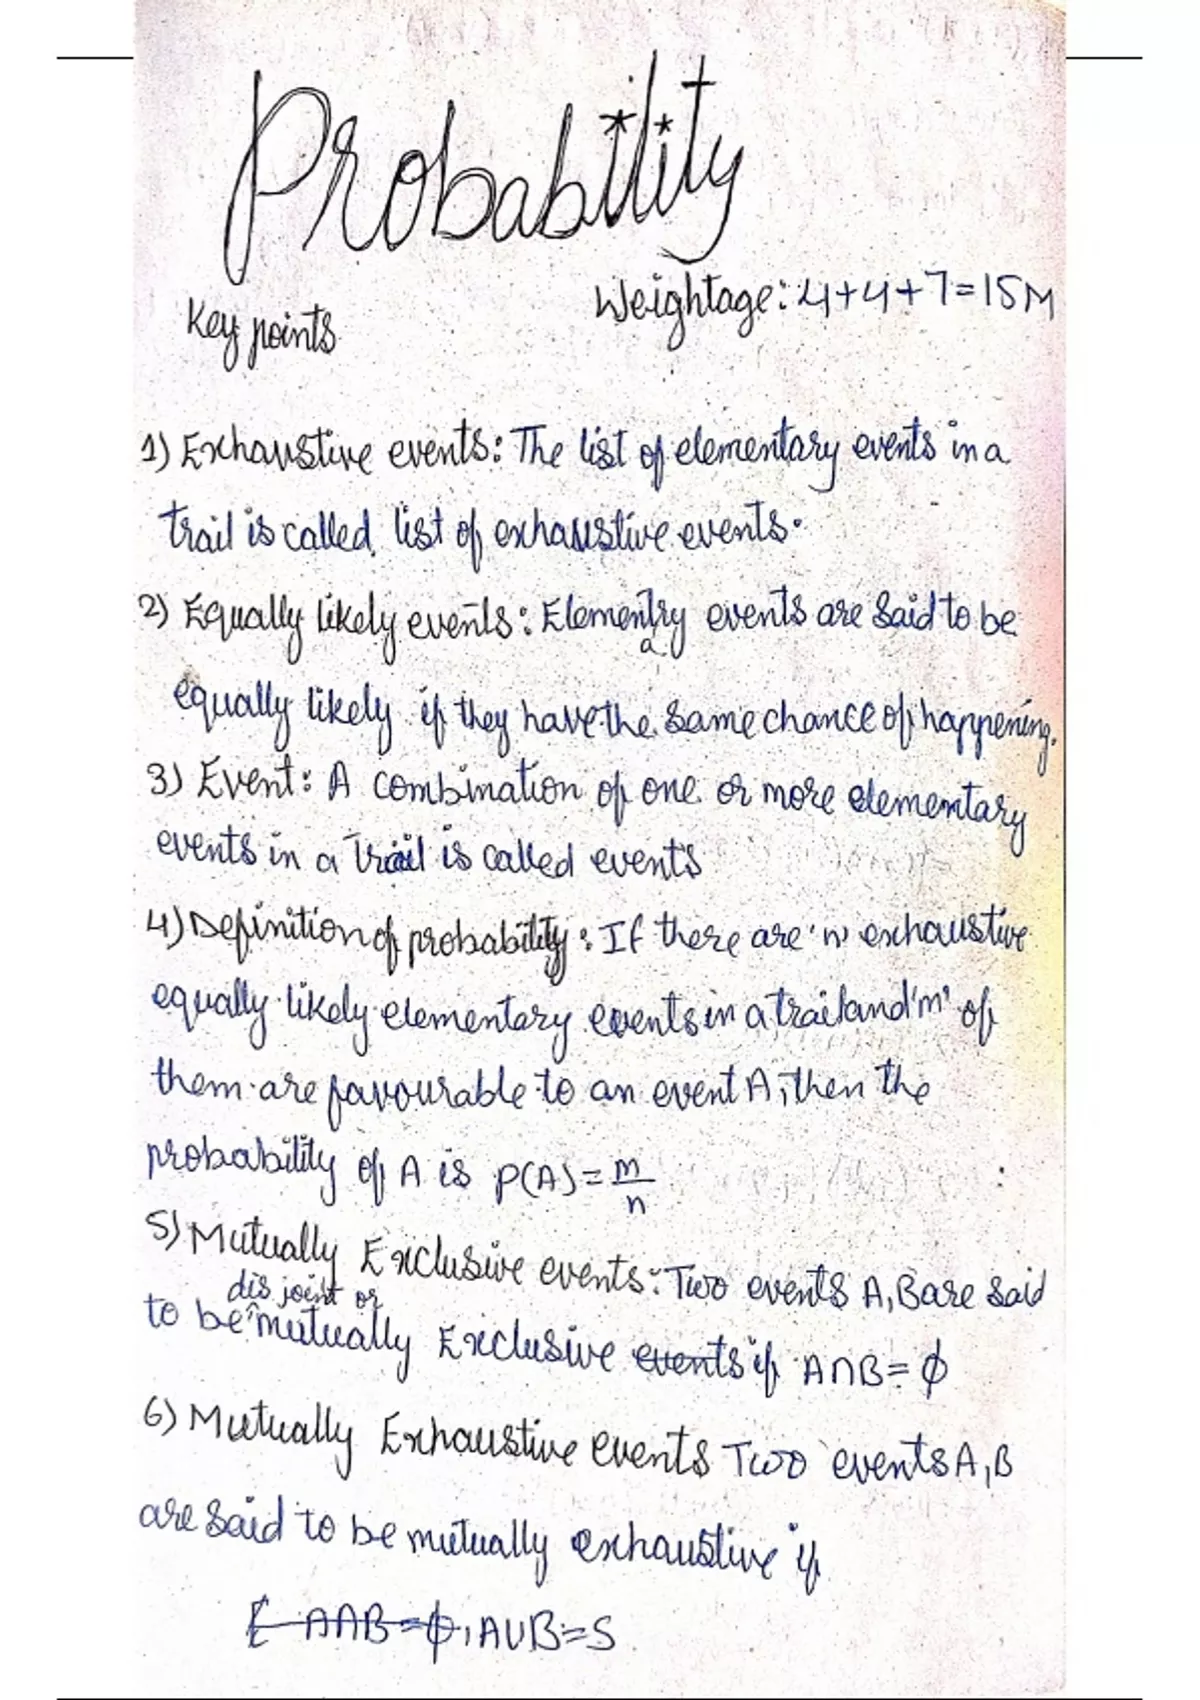 Probability
Weightage: 4+4+7=15M
Key points
1) Exhaustive events: The list of elementary events in a
trail is called list of exhaustive events.
2) Equally likely events: Elementary events are said to be
equally likely if they have the same chance of happening.
3) Event: A combination of one or more elementary
events in a trail is called events
4) Definition of probability: If there are 'n' exhaustive
equally likely elementary events in a trail and 'm' of
them are favourable to an event A, then the
probability of A is P(A) = m/n
5) Mutually Exclusive events: Two events A, B are said
to be disjoint or mutually Exclusive events if A∩B= ϕ
6) Mutually Exhaustive events Two events A, B
are said to be mutually exhaustive if
A∩B=ϕ, A∪B=S